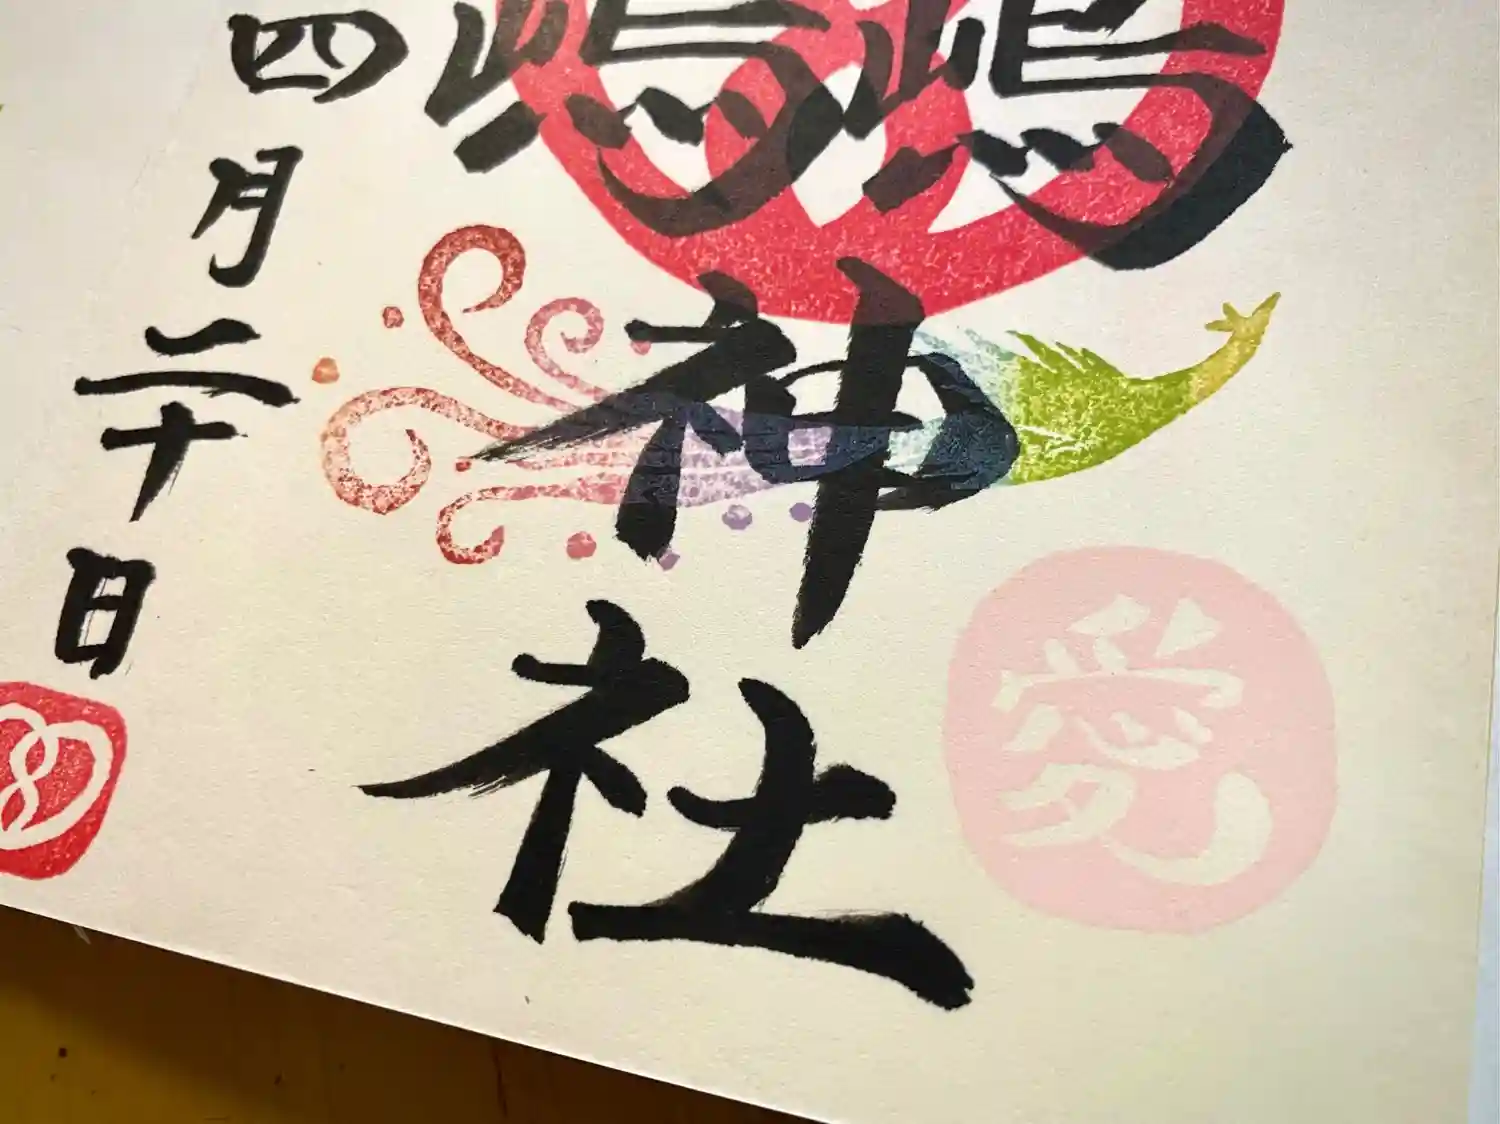 神社
四月二十日
愛